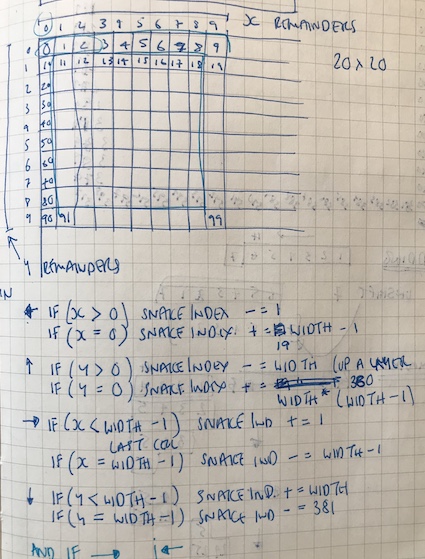 0 1 2 3 4 5 6 7 8 9 X REMAINDERS
0 0 1 2 3 4 5 6 7 8 9
1 10 11 12 13 14 15 16 17 18 19 20 x 20
2 20
3 30
4 40
5 50
6 60
7 70
8 80
9 90 91 99
Y REMAINDERS
← IF (X > 0) SNAKE INDEX -= 1
IF (X = 0) SNAKE INDEX += WIDTH - 1
19
↑ IF (Y > 0) SNAKE INDEX -= WIDTH (UP A LAYER
IF (Y = 0) SNAKE INDEX += 380
WIDTH * (WIDTH - 1)
→ IF (X < WIDTH - 1) SNAKE IND += 1
LAST COL
IF (X = WIDTH - 1) SNAKE IND -= WIDTH - 1
↓ IF (Y < WIDTH - 1) SNAKE IND. += WIDTH
IF (Y = WIDTH - 1) SNAKE IND -= 381
AND IF → ←